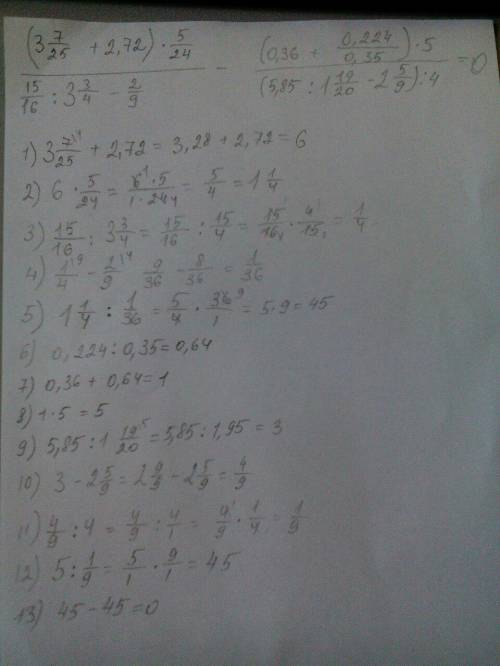 (3 7/25 + 2,72) · 5/24 / 15/16 : 3 3/4 − 2/9 − (0,36 + 0,224/0,35) · 5 / (5,85 : 1 19/20 − 2 5/9) : 4 = 0
1) 3 7/25 + 2,72 = 3,28 + 2,72 = 6
2) 6 · 5/24 = 6 · 5 / 1 · 24 4 = 5/4 = 1 1/4
3) 15/16 : 3 3/4 = 15/16 : 15/4 = 15/16 · 4/15 = 1/4
4) 1/4 − 2/9 9/36 − 8/36 = 1/36
5) 1 1/4 : 1/36 = 5/4 · 36/1 = 5 · 9 = 45
6) 0,224 : 0,35 = 0,64
7) 0,36 + 0,64 = 1
8) 1 · 5 = 5
9) 5,85 : 1 19/20 = 5,85 : 1,95 = 3
10) 3 − 2 5/9 = 2 9/9 − 2 5/9 = 4/9
11) 4/9 : 4 = 4/9 : 4/1 = 4/9 · 1/4 = 1/9
12) 5 : 1/9 = 5/1 · 9/1 = 45
13) 45 − 45 = 0